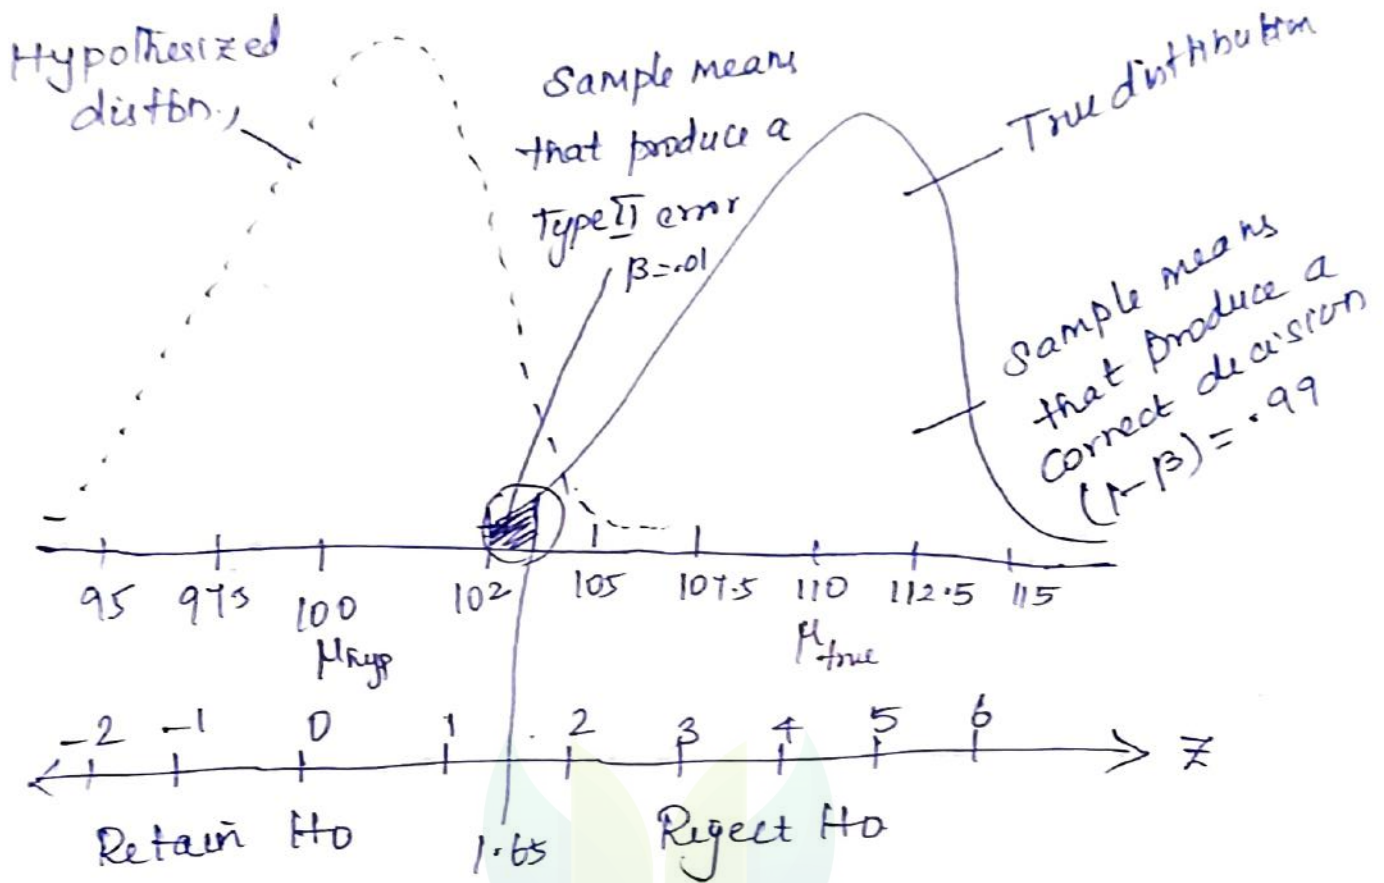 Hypothesized
distbn.,
Sample means
that produce a
Type II error
β=.01
True distribution
Sample means
that produce a
correct decision
(1-β) = .99
95 97.5 100 102 105 107.5 110 112.5 115
μhyp
μtrue
-2 -1 0 1 2 3 4 5 6
Z
Retain Ho
1.65
Reject Ho